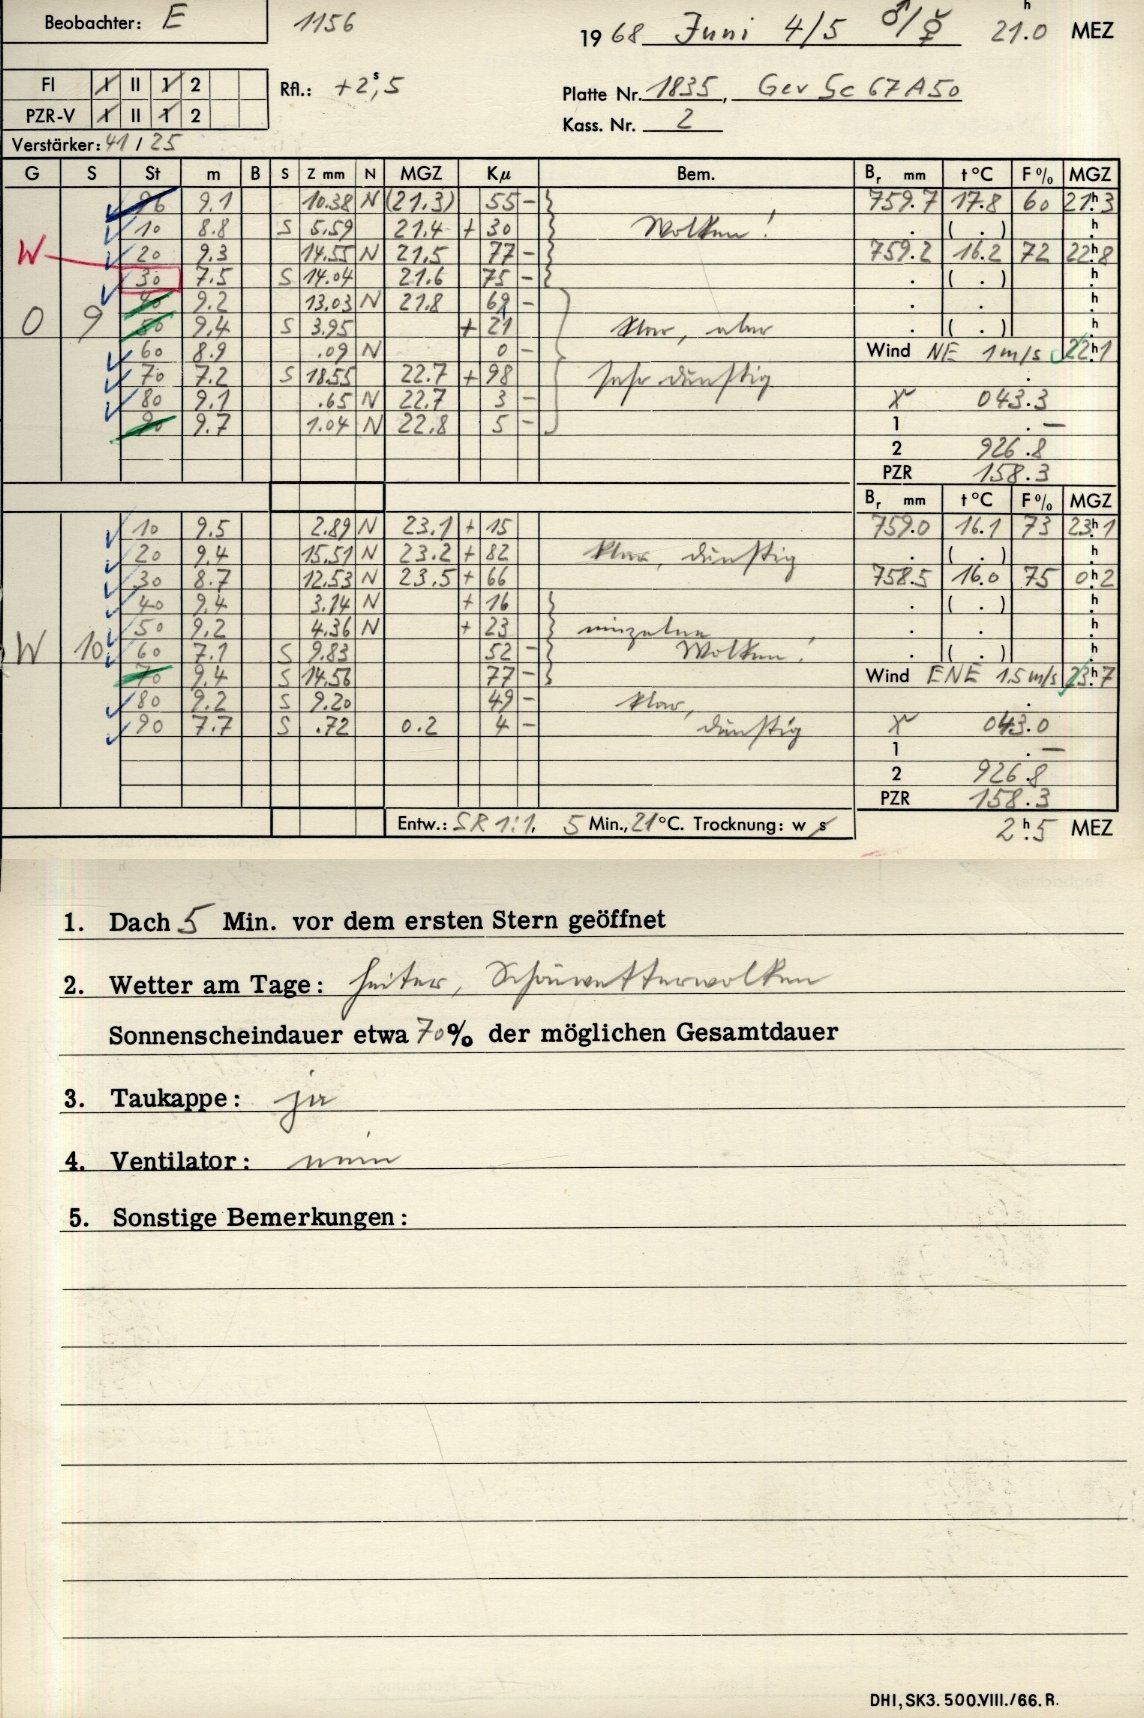 Beobachter: E 1156 1968 Juni 4/5 ♂/☿ 21.0 h MEZ
FI I II 1 2 Rfl.: +2,s5 Platte Nr. 1835, Gev Sc 67A50
PZR-V I II 1 2 Kass. Nr. 2
Verstärker: 41 / 25
G S St m B S Z mm N MGZ Kµ Bem. Br mm t °C F % MGZ
96 9.1 10.38 N (21.3) 55 - 759.7 17.8 60 21h3
10 8.8 S 5.59 21.4 + 30 Wolken! . ( . ) h
W 20 9.3 14.55 N 21.5 77 - 759.2 16.2 72 22h8
30 7.5 S 14.04 21.6 75 - . ( . ) h
40 9.2 13.03 N 21.8 69 - . . h
O 9 50 9.4 S 3.95 + 21 klar, aber . ( . ) h
60 8.9 .09 N 0 - Wind NE 1 m/s 22h1
70 7.2 S 18.55 22.7 + 98 sehr dunstig .
80 9.1 .65 N 22.7 3 - 043.3
90 9.7 1.04 N 22.8 5 - 1 . —
2 926.8
PZR 158.3
Br mm t °C F % MGZ
10 9.5 2.89 N 23.1 + 15 759.0 16.1 73 23h1
20 9.4 15.51 N 23.2 + 82 klar, dunstig . ( . ) h
30 8.7 12.53 N 23.5 + 66 758.5 16.0 75 0h2
40 9.4 3.14 N + 16 . ( . ) h
50 9.2 4.36 N + 23 einzelne . . h
W 10 60 7.1 S 9.83 52 - Wolken! . ( . ) h
70 9.4 S 14.56 77 - Wind ENE 1.5 m/s 23h7
80 9.2 S 9.20 49 - klar, .
90 7.7 S .72 0.2 4 - dunstig 043.0
1 . —
2 926.8
PZR 158.3
Entw.: SR 1:1, 5 Min., 21 °C. Trocknung: w s 2h.5 MEZ
1. Dach 5 Min. vor dem ersten Stern geöffnet
2. Wetter am Tage: heiter, Schönwetterwolken
Sonnenscheindauer etwa 70% der möglichen Gesamtdauer
3. Taukappe: ja
4. Ventilator: nein
5. Sonstige Bemerkungen:
DHI, SK3. 500.VIII./66. R.